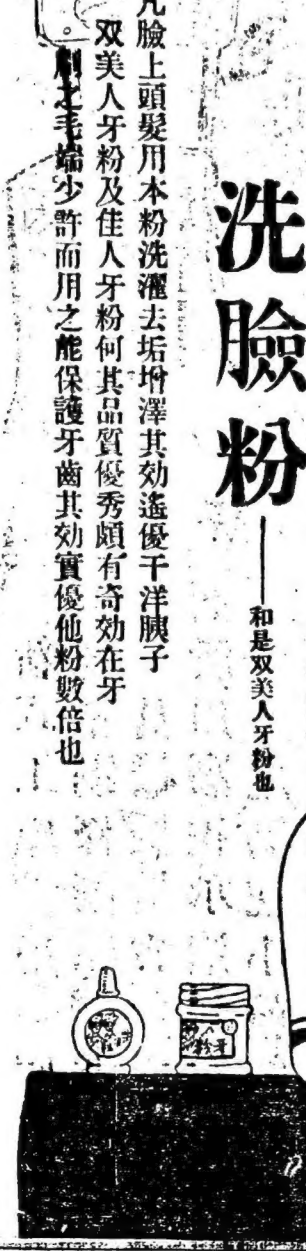 洗臉粉
和是双美人牙粉也
凡臉上頭髮用本粉洗濯去垢增澤其効遙優干洋胰子
双美人牙粉及佳人牙粉何其品質優秀頗有奇効在牙
刷之毛端少許而用之能保護牙齒其効實優他粉數倍也